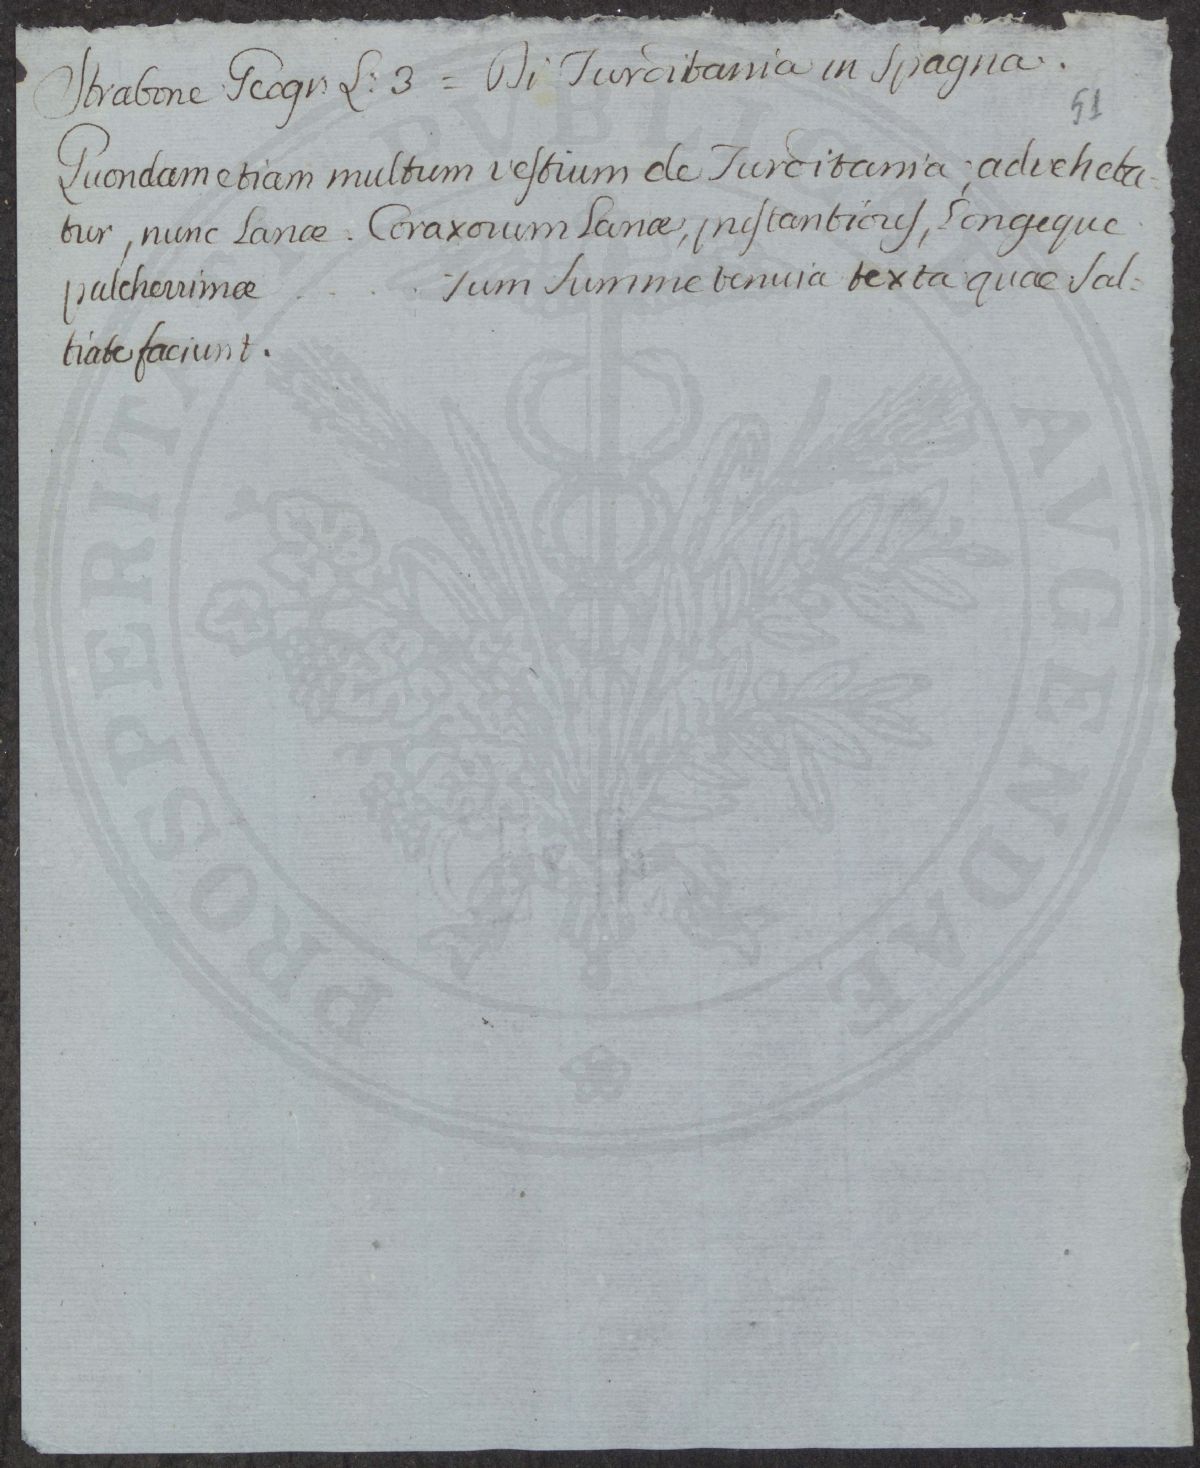 Strabone Geogr. L: 3 = Di Turditania in Spagna.
51
Quondam etiam multum vestium de Turditania, adveheba=
tur, nunc Lanæ. Coraxorum Lanæ, longeque
pulcherrimæ . . . . . Tum summe tenuia texta quae Sal=
tiatæ faciunt.
PROSPERITATI PUBLICAE AVGENDAE